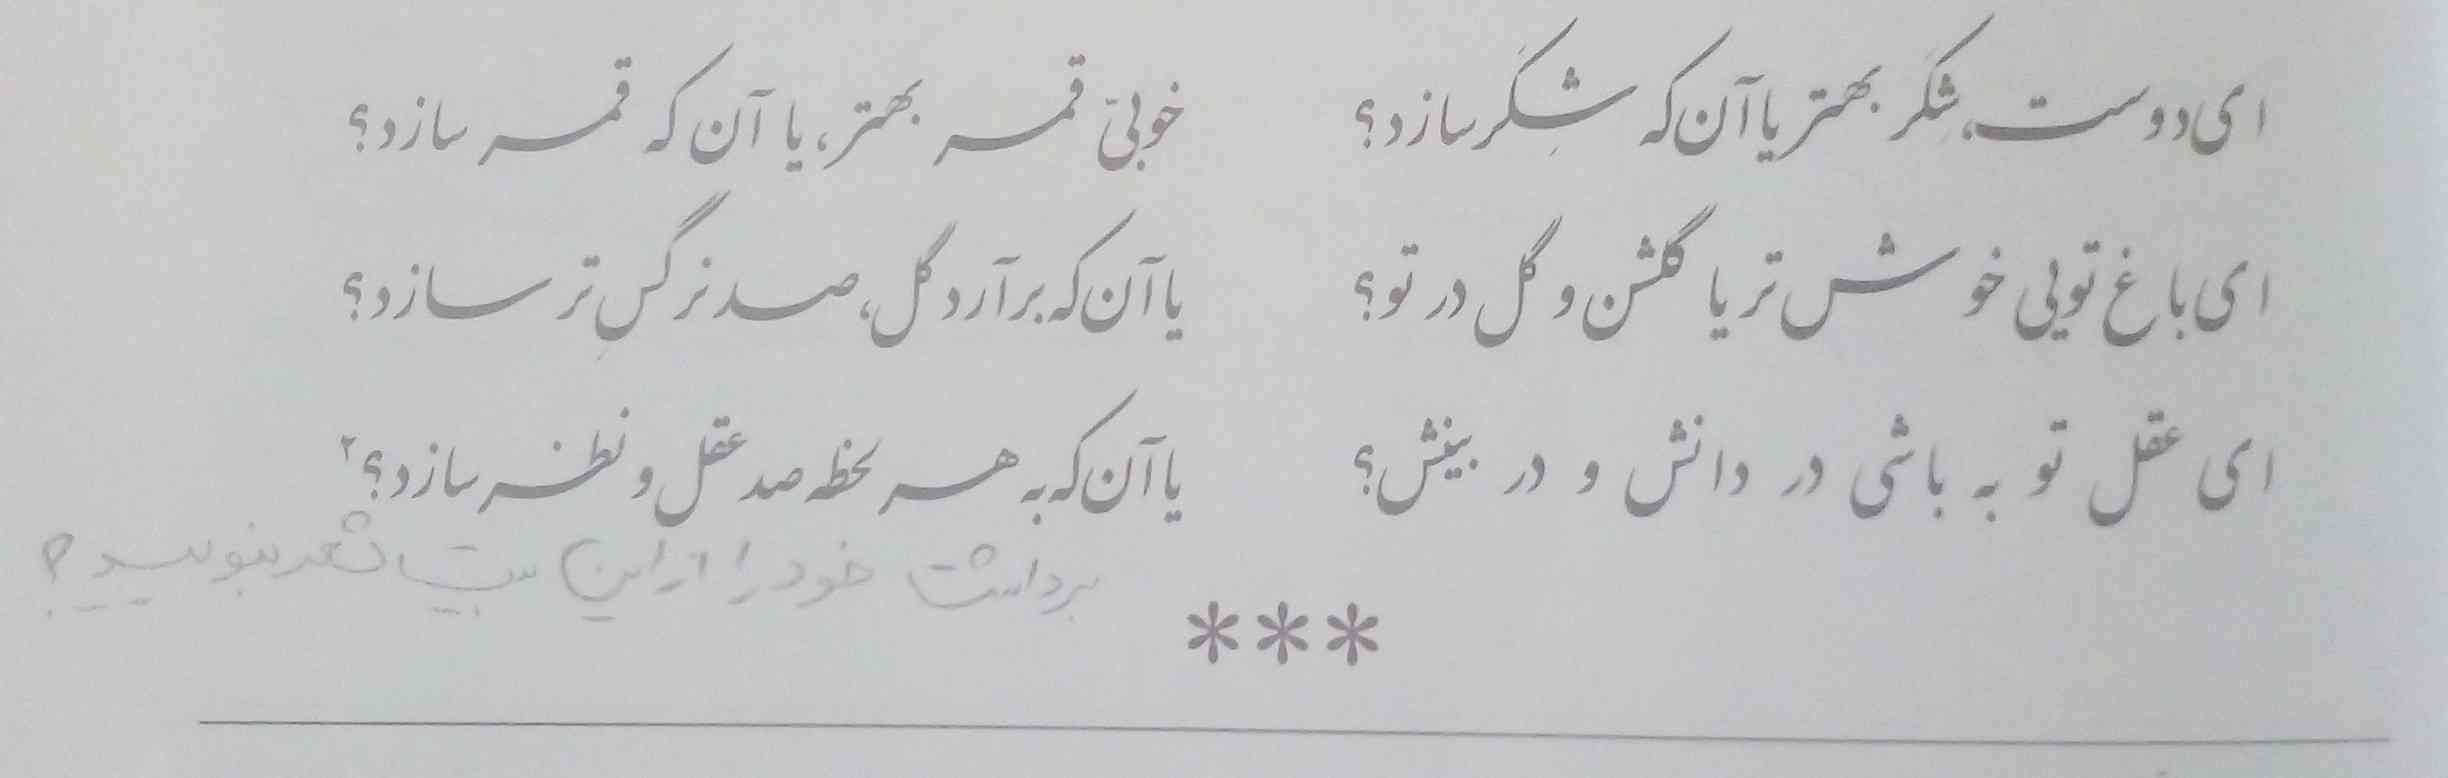 ای دوست، شکَر بهتر یا آن که شِکَر سازد؟ خوبیّ قمر بهتر، یا آن که قمر سازد؟
ای باغ تویی خوش تر یا گلشن و گل در تو؟ یا آن که برآرد گل، صد نرگسِ تر سازد؟
ای عقل تو به باشی در دانش و در بینش؟ یا آن که به هر لحظه صد عقل و نظر سازد؟۲
برداشت خود را از این بیت شعر بنویسید؟
***